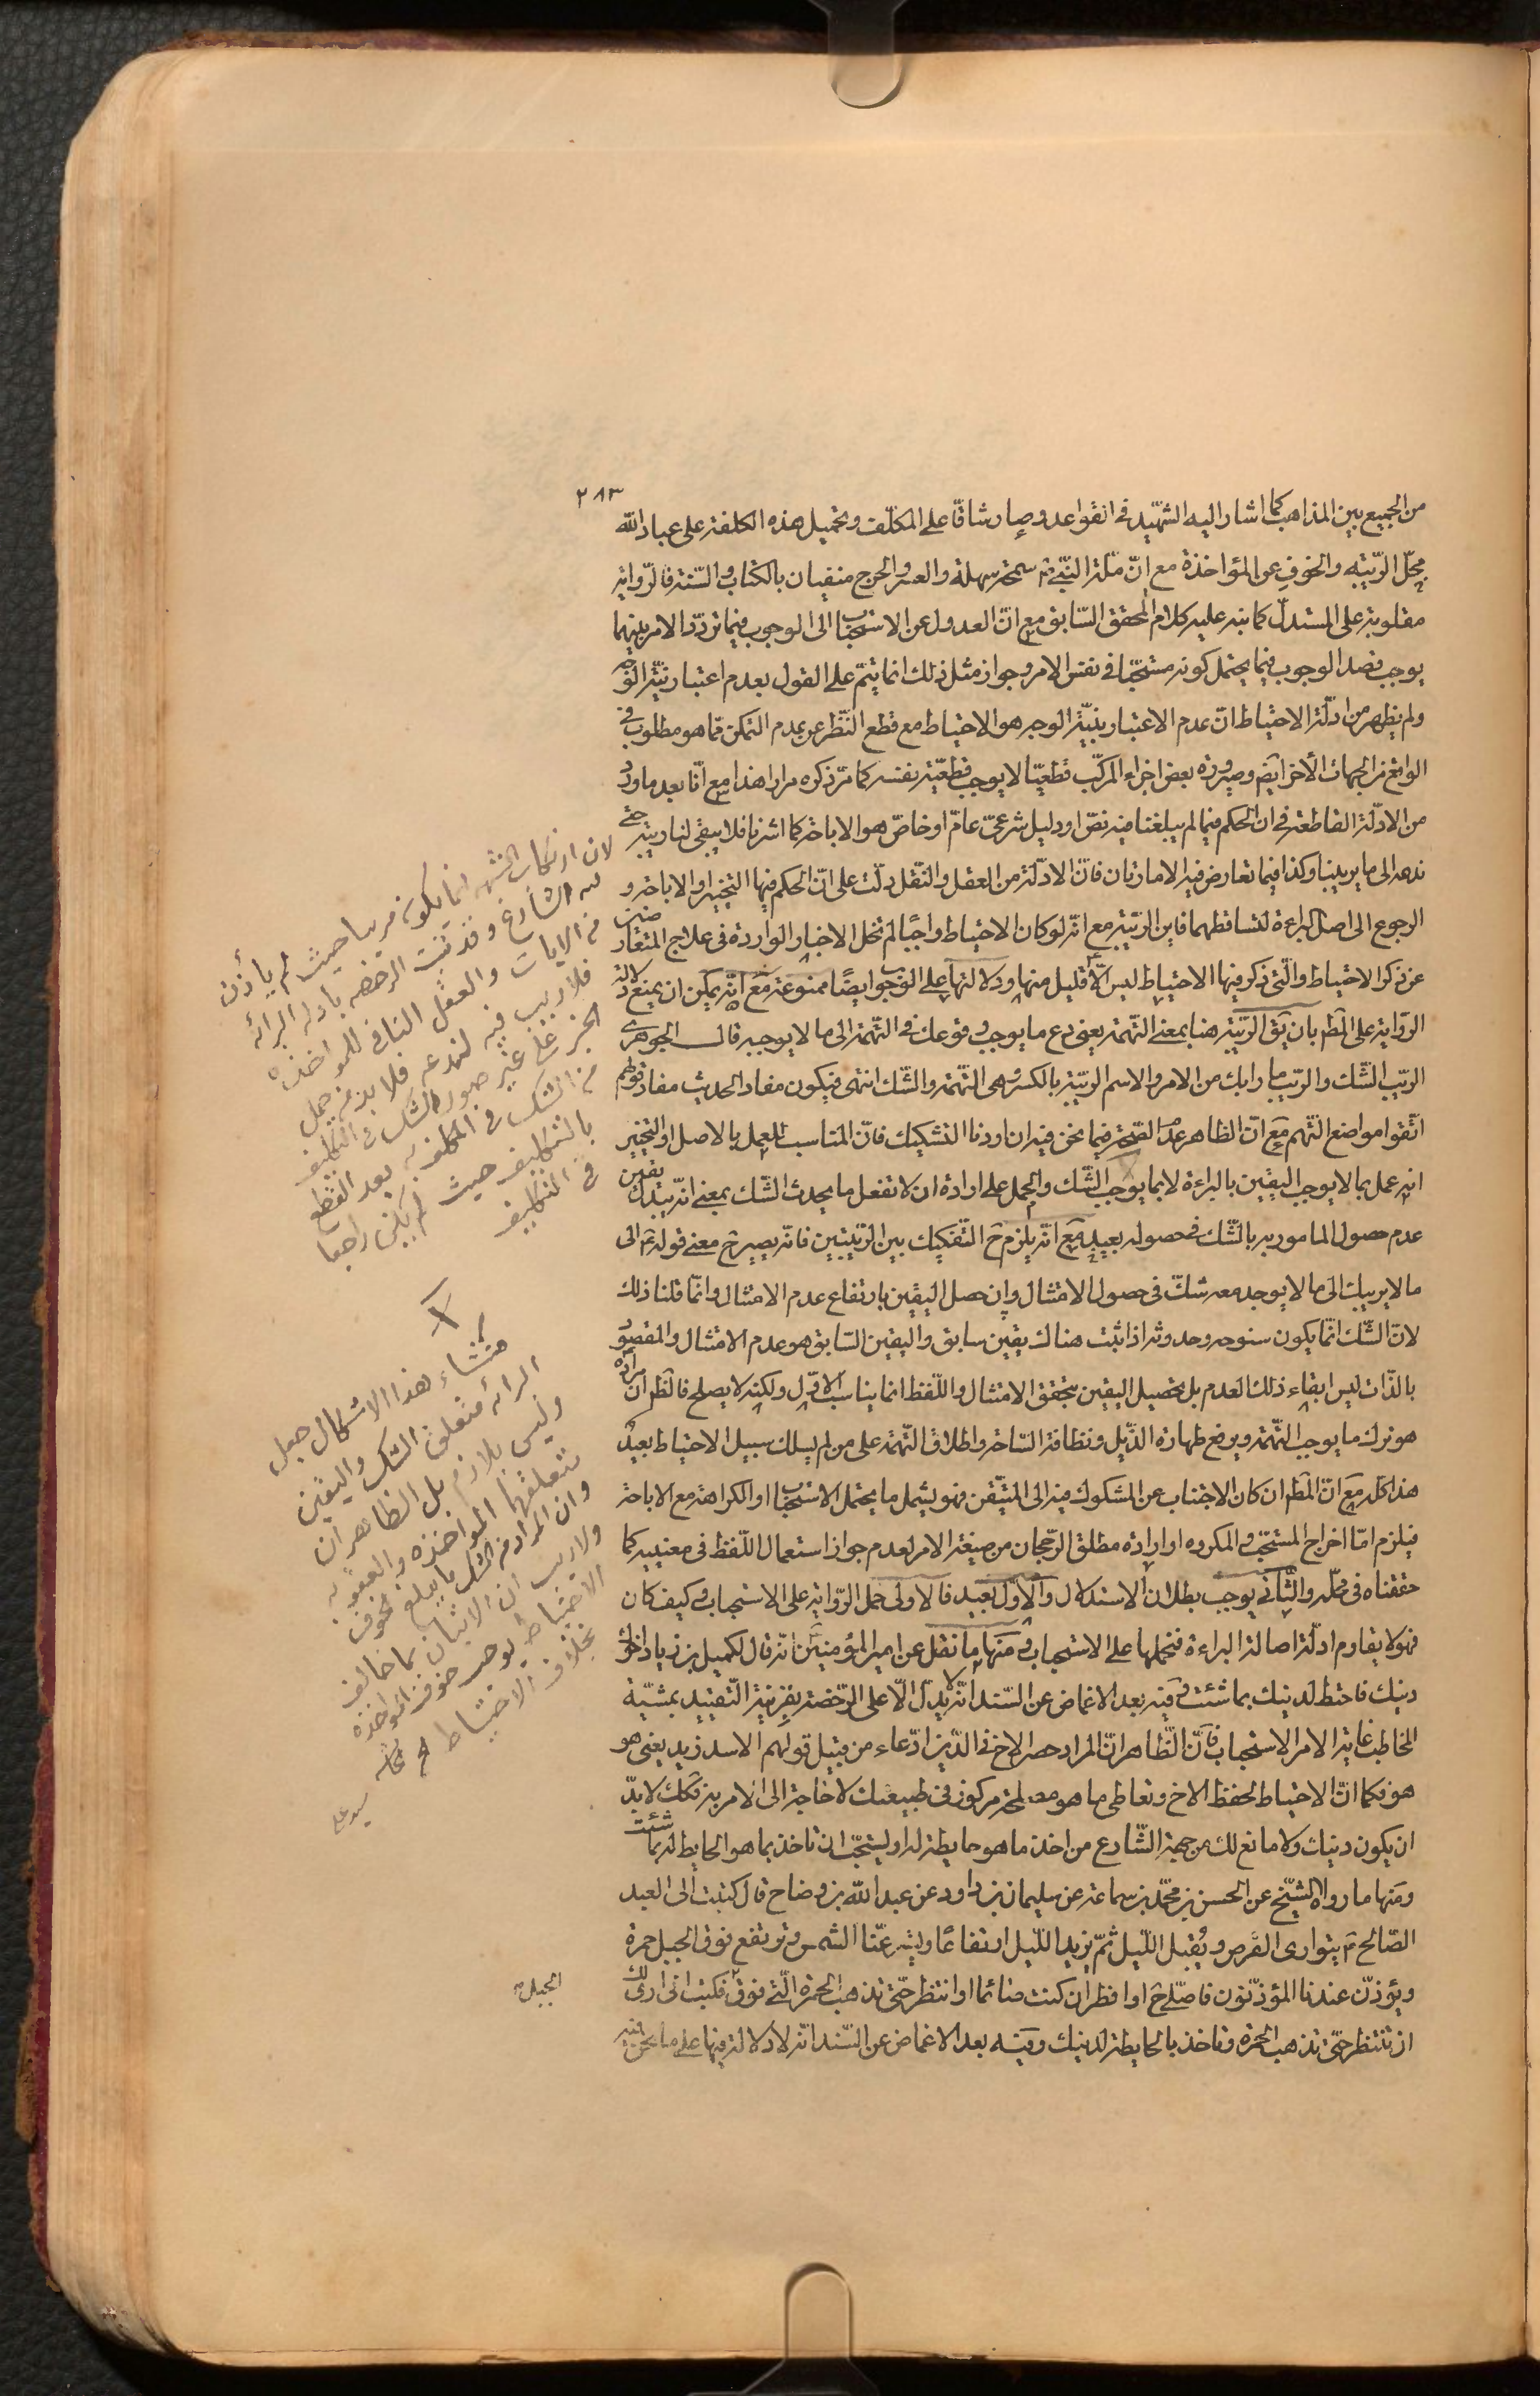 ٢٨٣
من الجميع بين المذاهب كما اشار اليه الشهيد في القواعد وصار شاقا على المكلف وتحميل هذه الكلفة على عباد الله
محل الريبة والخوف عن المؤاخذة مع انّ ملة النبي ص سمحة سهلة والعسر والحرج منفيان بالكتاب والسنة فالرواية
مقلوبة على المستدل كما نبه عليه كلام المحقق السابق مع ان العدول عن الاستحباب الى الوجوب فيما تردد الامر بينهما
يوجب قصد الوجوب فيما يحتمل كونه مستحبا في نفس الامر وجواز مثل ذلك انما يتم على القول بعدم اعتبار نية الوجه
ولم يظهر من ادلة الاحتياط ان عدم الاعتبار بنية الوجه هو الاحتياط مع قطع النظر عن عدم التمكن مما هو مطلوب في
الواقع من الجهات الأخر ايضا وصيرورة بعض اجزاء المركب قطعيا لا يوجب قطعية نفسه كما مر ذكره مرارا هذا مع انا بعد ما ورد
من الادلة القاطعة في ان الحكم فيما لم يبلغنا فيه نص او دليل شرعي عام او خاص هو الاباحة كما اشرنا فلا يبقى لنا ريبة حتى
ندعه الى ما يريبنا وكذا فيما تعارض فيه الامارتان فان الادلة من العقل والنقل دلت على ان الحكم فيها التخيير او الاباحة و
الرجوع الى اصل البراءة لتساقطهما فاين الريبة مع انه لو كان الاحتياط واجبا لم تخل الاخبار الواردة في علاج المتعارضين
عن ذكر الاحتياط والتي ذكر فيها الاحتياط ليس الا قليل منها ودلالتها على الوجوب ايضا ممنوعة مع انه يمكن ان يمنع دلالة
الرواية على المط بان يق الريبة هنا بمعنى التهمة يعني دع ما يوجب وقوعك في التهمة الى ما لا يوجبه قال الجوهري
الريب الشك والريب ما رابك من الامر والاسم الريبة بالكسر وهي التهمة والشك انتهى فيكون مفاد الحديث مفاد قولهم
اتقوا مواضع التهم مع ان الظاهر عدم الصحة فيما نحن فيه ان اردنا التشكيك فان المناسب للعمل بالاصل او التخيير
انه عمل بما لا يوجب اليقين بالبراءة لا بما يوجب الشك والحمل على ارادة ان لا تفعل ما يحدث الشك بمعنى انه يبدل يقين
عدم حصول المامور به بالشك في حصوله بعيد مع انه يلزم ح التفكيك بين الريبتين فانه يصير ح معنى قوله ع الى
ما لا يريبك الى ما لا يوجد معه شك في حصول الامتثال وان حصل اليقين بارتفاع عدم الامتثال وانما قلنا ذلك
لان الشك انما يكون سنوحه وحدوثه اذا ثبت هناك يقين سابق واليقين السابق هو عدم الامتثال والمقصود
بالذات ليس ابقاء ذلك العدم بل تحصيل اليقين بتحقق الامتثال واللفظ انما يناسب الاول ولكنه لا يصلح فالظ ان مراده
هو ترك ما يوجب التهمة ويرفع طهارة الذيل ونظافة الساحة واطلاق التهمة على من لم يسلك سبيل الاحتياط بعيد
هذا كله مع ان المط ان كان الاجتناب عن المشكوك فيه الى المتيقن فهو يشمل ما يحتمل الاستحباب او الكراهة مع الاباحة
فيلزم اما اخراج المستحب والمكروه او ارادة مطلق الرجحان من صيغة الامر لعدم جواز استعمال اللفظ في معنييه كما
حققناه في محله والثاني يوجب بطلان الاستدلال والاول بعيد فالاولى حمل الرواية على الاستحباب وكيف كان
فهو لا يقاوم ادلة اصالة البراءة فنحملها على الاستحباب ومنها ما نقل عن امير المؤمنين ع انه قال لكميل بن زياد اخوك
دينك فاحتط لدينك بما شئت وفيه بعد الاغماض عن السند انه لا يدل الا على الرخصة بقرينة التقييد بمشية
المخاطب غاية الامر الاستحباب فان الظاهر ان المراد حصر الاخ في الدين ادعاء من قبيل قولهم الاسد زيد يعني هو
هو فكما ان الاحتياط لحفظ الاخ وتعاطي ما هو مصلحته مركوز في طبيعتك لا حاجة الى الامر به فكك لا بد
ان يكون دينك ولا مانع لك من جهة الشارع من اخذ ما هو حايطة له او ليستحب ان تاخذ بما هو الحايطة له بما شئت
ومنها ما رواه الشيخ عن الحسن بن محمد بن سماعة عن سليمان بن داود عن عبد الله بن وضاح قال كتبت الى العبد
الصالح ع يتوارى القرص ويقبل الليل ثم يزيد الليل ارتفاعا ويستر عنا الشمس وترتفع فوق الجبل حمرة
ويؤذن عندنا المؤذنون فاصلي ح او افطر ان كنت صائما او انتظر حتى تذهب الحمرة التي فوق فكتب الى ارى لك
ان تنتظر حتى تذهب الحمرة وتاخذ بالحايطة لدينك وفيه بعد الاغماض عن السند انه لا دلالة فيها على ما نحن فيه
الجبل
لان ارتكاب الشبهه انما يكون مريبا حيث لم يأذن
له الشارع وقد ثبت الرخصه بادله البرائه
من الايات والعقل النافى للمواخذه
فلا ريب فيه لندعه فلا بد من حمل
الخبر على غير صورة الشك في التكليف
من الشك في المكلف به بعد القطع
بالتكليف حيث لم يكن راجعا
في التكليف
منشاء هذا الاشكال جعل
البرائه متعلق الشك واليقين
وليس بلازم بل الظاهر ان
متعلقهما المواخذه والعقوبه
وان المراد من الشك ما يبلغ خوف
ولا ريب ان الاتيان بما خالف
الاحتياط يوجب خوف المواخذه
بخلاف الاحتياط
سيد على